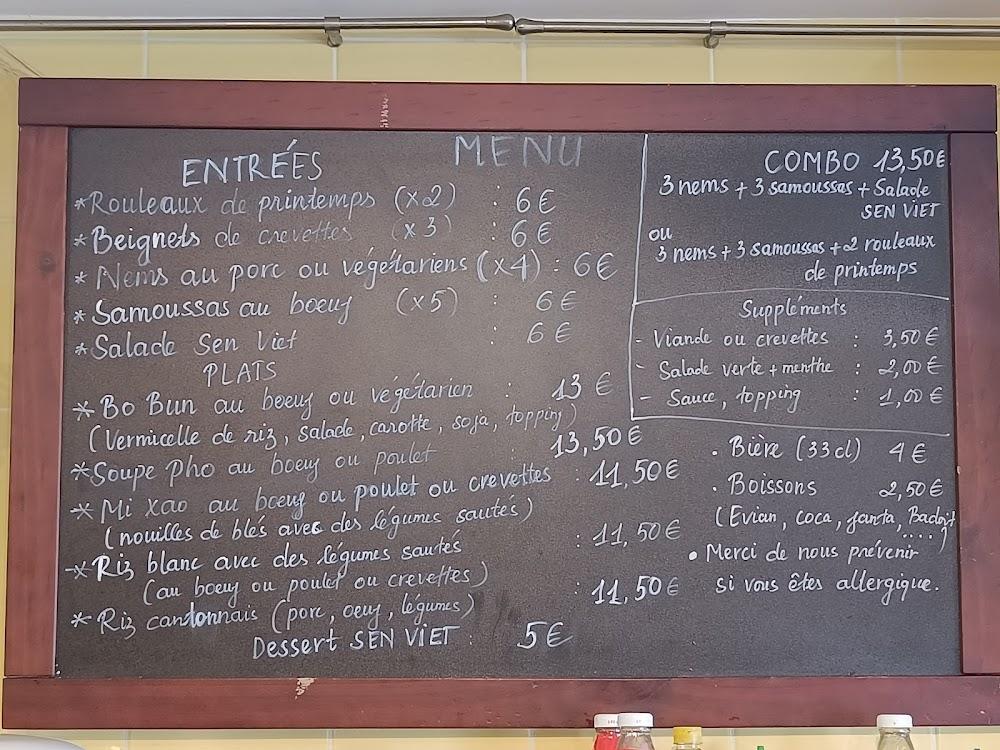 MENU
ENTRÉES
*Rouleaux de printemps (x2) : 6€
*Beignets de crevettes (x3) : 6€
*Nems au porc ou végétariens (x4) : 6€
*Samoussas au boeuf (x5) : 6€
*Salade Sen Viet : 6€
PLATS
*Bo Bun au boeuf ou végétarien : 13€
(Vermicelle de riz, salade, carotte, soja, topping)
*Soupe Pho au boeuf ou poulet : 13,50€
*Mi Xao au boeuf ou poulet ou crevettes : 11,50€
(nouilles de blés avec des légumes sautés)
*Riz blanc avec des légumes sautés : 11,50€
(au boeuf ou poulet ou crevettes)
*Riz cantonnais (porc, oeuf, légumes) : 11,50€
Dessert SEN VIET : 5€
COMBO 13,50€
3 nems + 3 samoussas + Salade
SEN VIET
ou
3 nems + 3 samoussas + 2 rouleaux
de printemps
Suppléments
- Viande ou crevettes : 3,50€
- Salade verte + menthe : 2,00€
- Sauce, topping : 1,00€
. Bière (33cl) 4€
. Boissons 2,50€
(Evian, coca, fanta, Badoit
....)
• Merci de nous prévenir
si vous êtes allergique.